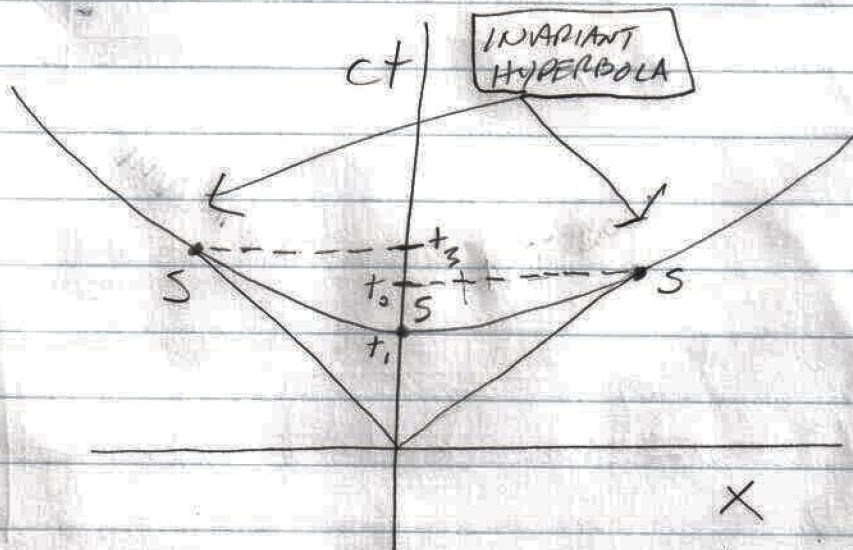 INVARIANT
HYPERBOLA
ct
t₃
S
t₀
S
S
t₁
X